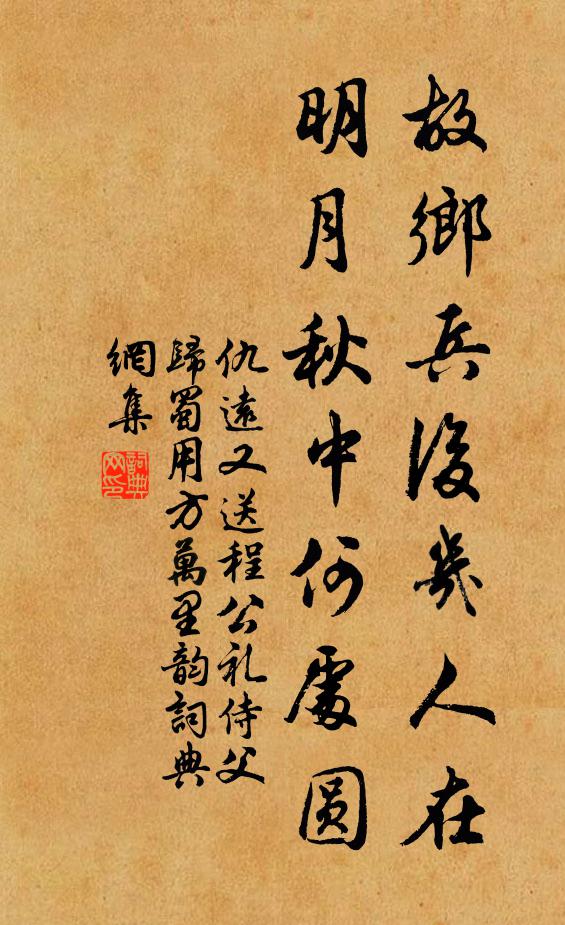 故鄉兵後幾人在
明月秋中何處圆
仇遠又送程公礼侍父
歸蜀用方萬里韵詞典
網集
詞典
网印